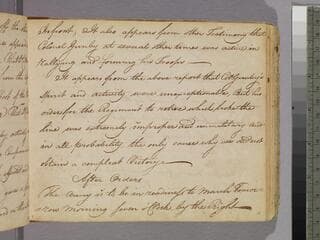 the front, It also appears from other Testimony that
Colonel Gunby at several other times was active in
Rallying and forming his Troops —
It appears from the above report that Col Gunby's
Spirit and activity were unexceptionable, But his
order for the Regiment to retire which broke the
line was extremely improper and unmilitary and
in all probability the only cause why we did not
obtain a compleat Victory —
After Orders
The army is to be in readiness to march Tomor-
row morning seven oClock by the Right